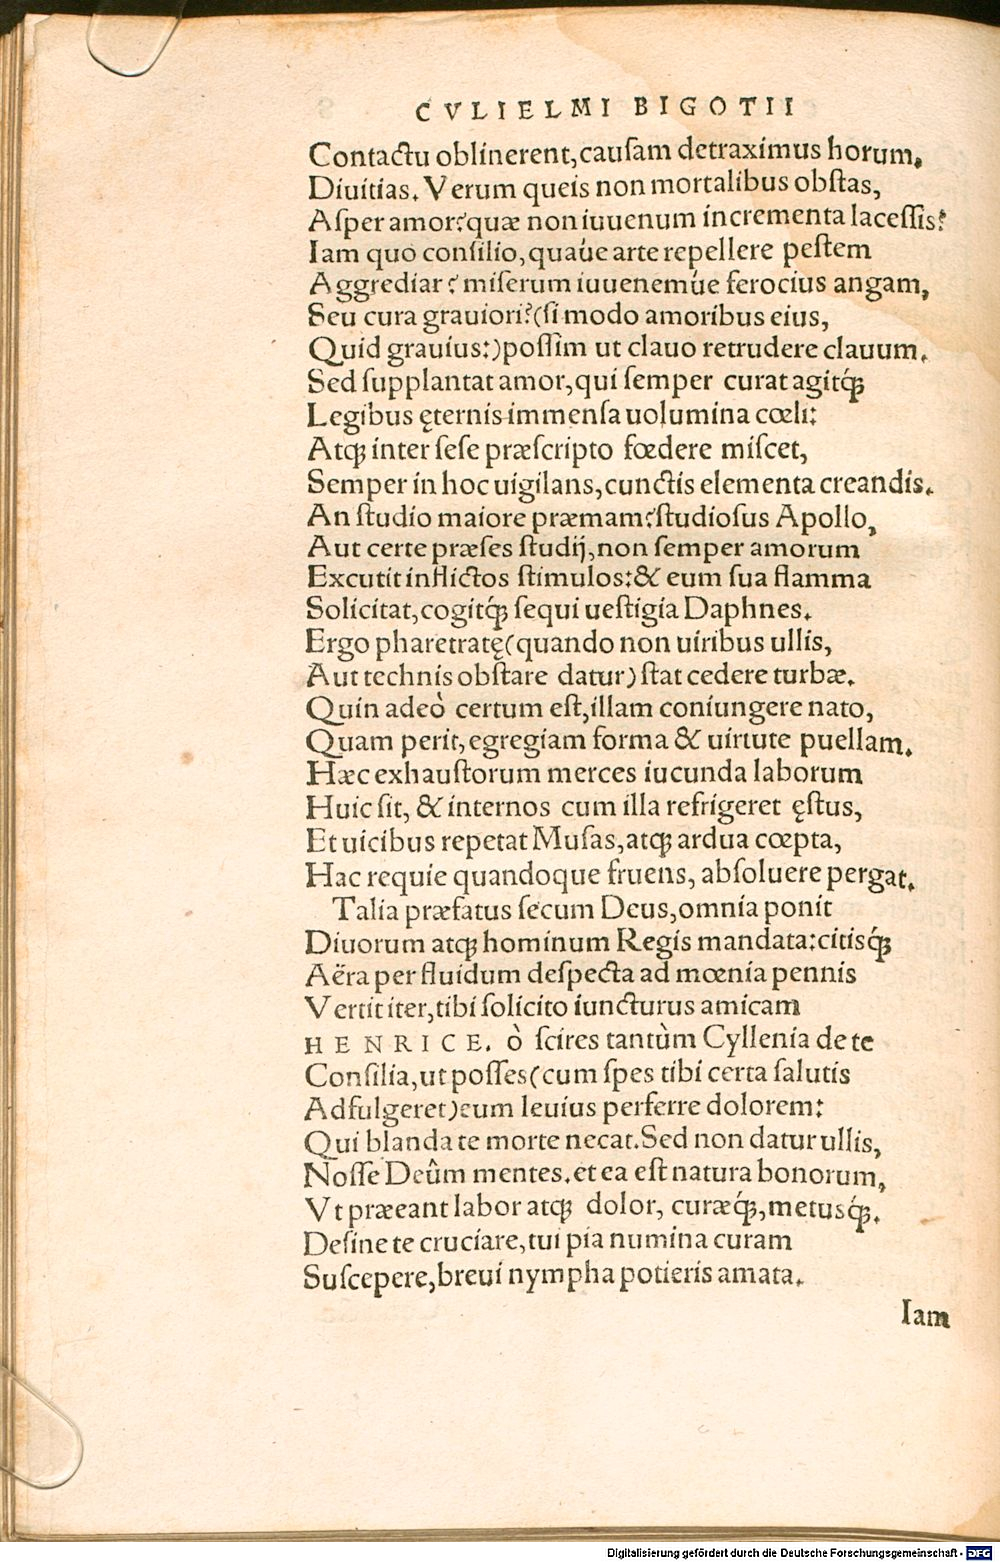 CVLIELMI BIGOTII
Contactu oblinerent, cauſam detraximus horum,
Diuitias. Verum queis non mortalibus obſtas,
Aſper amor? quæ non iuuenum incrementa laceſſis?
Iam quo conſilio, quaúe arte repellere peſtem
Aggrediar? miſerum iuuenemúe ferocius angam,
Seu cura grauiori? (ſi modo amoribus eius,
Quid grauius:) poſſim ut clauo retrudere clauum.
Sed ſupplantat amor, qui ſemper curat agitq́;
Legibus ęternis immenſa uolumina cœli:
Atq; inter ſeſe præſcripto fœdere miſcet,
Semper in hoc uigilans, cunctis elementa creandis.
An ſtudio maiore præmam? ſtudioſus Apollo,
Aut certe præſes ſtudij, non ſemper amorum
Excutit inflictos ſtimulos: & eum ſua flamma
Solicitat, cogitq́; ſequi ueſtigia Daphnes.
Ergo pharetratę (quando non uiribus ullis,
Aut technis obſtare datur) ſtat cedere turbæ.
Quin adeò certum eſt, illam coniungere nato,
Quam perit, egregiam forma & uirtute puellam.
Hæc exhauſtorum merces iucunda laborum
Huic ſit, & internos cum illa refrigeret ęſtus,
Et uicibus repetat Muſas, atq; ardua cœpta,
Hac requie quandoque fruens, abſoluere pergat.
Talia præfatus ſecum Deus, omnia ponit
Diuorum atq; hominum Regis mandata: citisq́;
Aëra per fluidum deſpecta ad mœnia pennis
Vertit iter, tibi ſolicito iuncturus amicam
HENRICE. ò ſcires tantùm Cyllenia de te
Conſilia, ut poſſes (cum ſpes tibi certa ſalutis
Adfulgeret) eum leuius perferre dolorem:
Qui blanda te morte necat. Sed non datur ullis,
Noſſe Deûm mentes. et ea eſt natura bonorum,
Vt præeant labor atq; dolor, curæq́;, metusq́;.
Deſine te cruciare, tui pia numina curam
Suſcepere, breui nympha potieris amata.
Iam
Digitalisierung gefördert durch die Deutsche Forschungsgemeinschaft - DFG